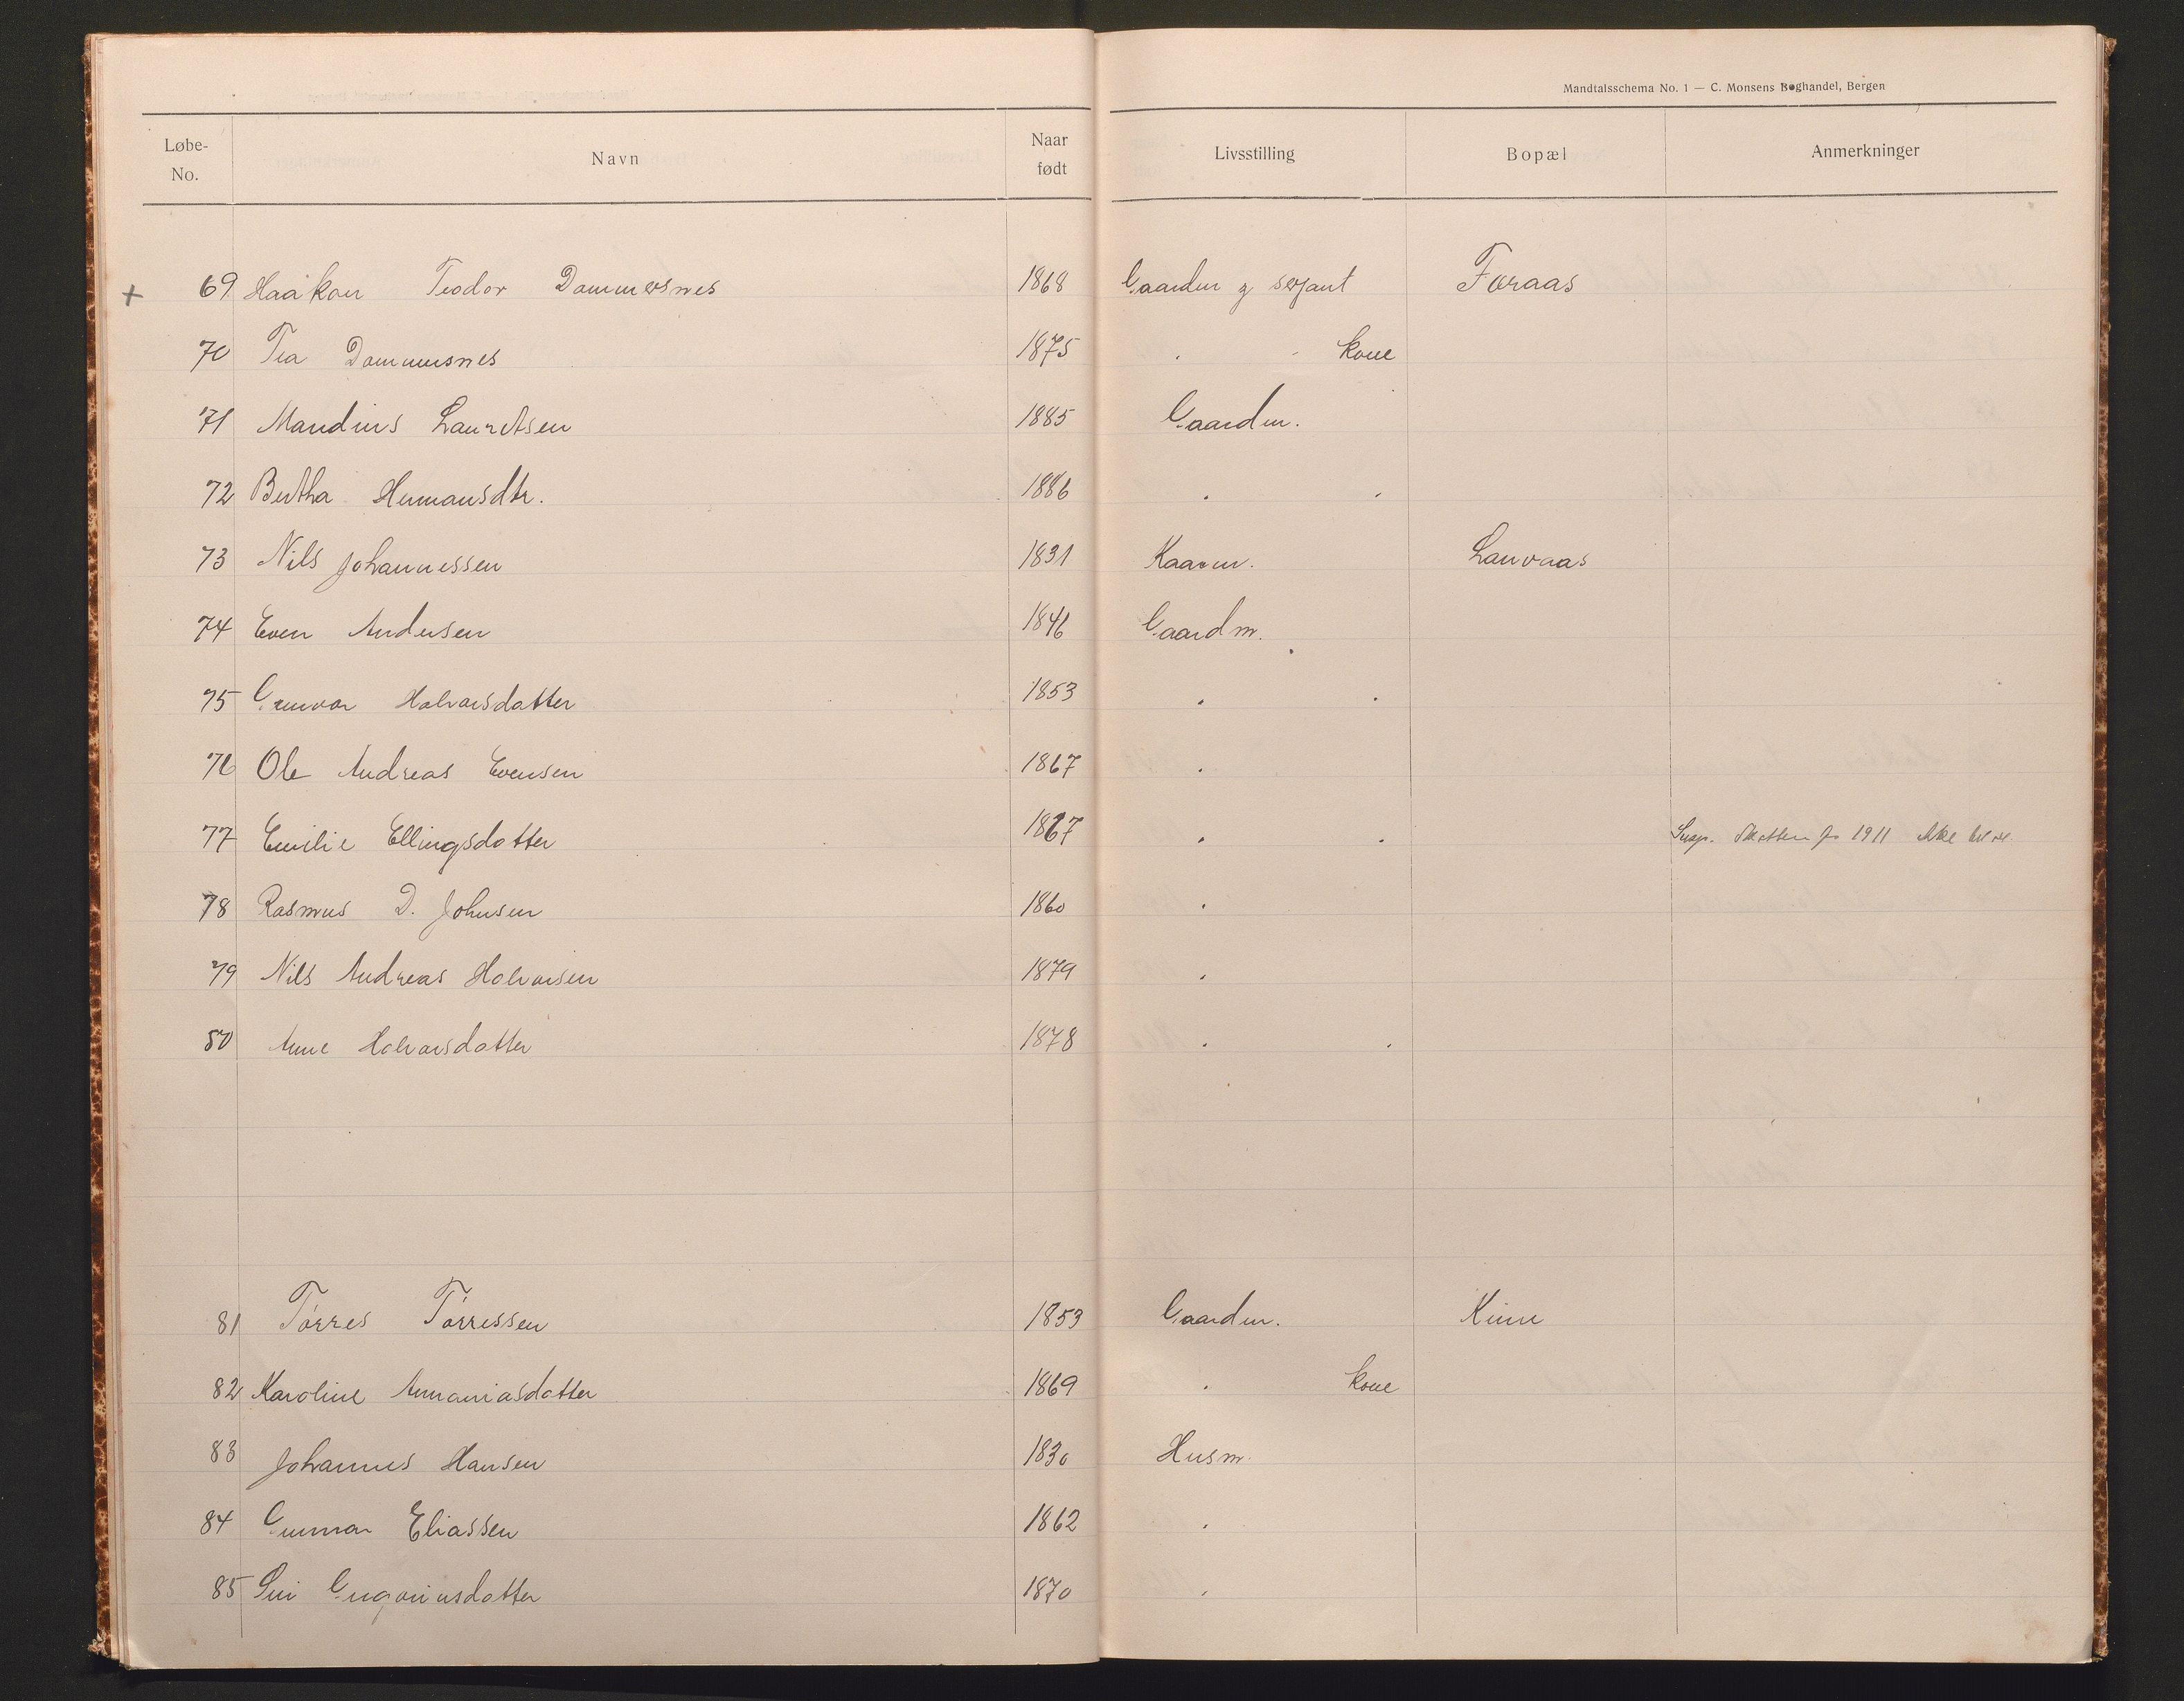 Mandtalsschema No. 1 — C. Monsens Boghandel, Bergen
Løbe-No. Navn Naar født Livsstilling Bopæl Anmerkninger
+ 69 Haakon Teodor Dommersnes 1868 Gaardm og serjant Foraas
70 Tea Dommersnes 1875 " " kone
71 Mandius Lauritsen 1885 Gaardm.
72 Bertha Hermansdtr. 1886 " "
73 Nils Johannessen 1831 Kaarm. Lauvaas
74 Even Andersen 1846 Gaardm.
75 Gunvor Halvorsdatter 1853 " "
76 Ole Andreas Evensen 1867 "
77 Emilie Ellingsdatter 1867 " " Skatten for 1911 ikke
78 Rasmus D. Johnsen 1860 "
79 Nils Andreas Halvorsen 1879 "
80 Anne Halvorsdatter 1878 " "
81 Tørres Tørressen 1853 Gaardm. Kinne
82 Karoline Annaniasdatter 1869 " kone
83 Johannes Hansen 1830 Husm.
84 Gunnar Eliassen 1862 "
85 Siri Gregoriusdatter 1870 "